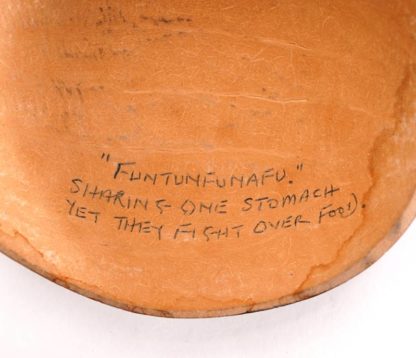 "FUNTUNFUNAFU."
SHARING ONE STOMACH
YET THEY FIGHT OVER FOOD.